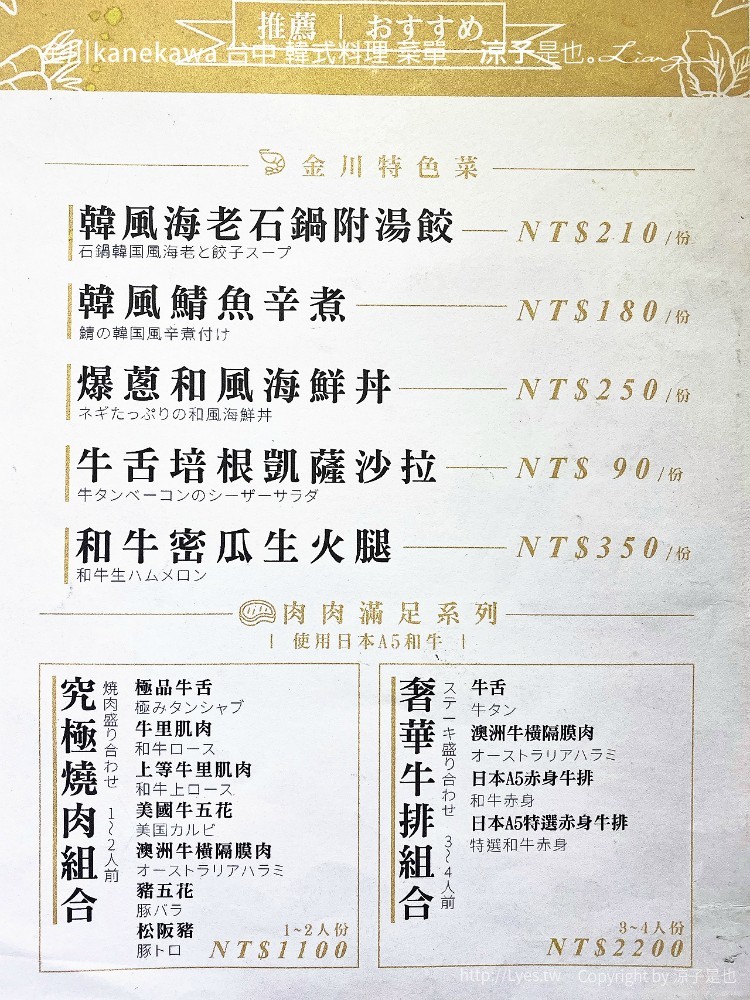 推薦 | おすすめ
kanekawa 台中 韓式料理 菜單 涼子是也。Liang
金川特色菜
韓風海老石鍋附湯餃 NT$210/份
石鍋韓国風海老と餃子スープ
韓風鯖魚辛煮 NT$180/份
鯖の韓国風辛煮付け
爆蔥和風海鮮丼 NT$250/份
ネギたっぷりの和風海鮮丼
牛舌培根凱薩沙拉 NT$ 90/份
牛タンベーコンのシーザーサラダ
和牛密瓜生火腿 NT$350/份
和牛生ハムメロン
肉肉滿足系列
| 使用日本A5和牛 |
究極燒肉組合
焼肉盛り合わせ 1~2人前
極品牛舌
極みタンシャブ
牛里肌肉
和牛ロース
上等牛里肌肉
和牛上ロース
美國牛五花
美国カルビ
澳洲牛橫隔膜肉
オーストラリアハラミ
豬五花
豚バラ
松阪豬
豚トロ
1~2人份
NT$1100
奢華牛排組合
ステーキ盛り合わせ 3~4人前
牛舌
牛タン
澳洲牛橫隔膜肉
オーストラリアハラミ
日本A5赤身牛排
和牛赤身
日本A5特選赤身牛排
特選和牛赤身
3~4人份
NT$2200
http://Lyes.tw Copyright by 涼子是也